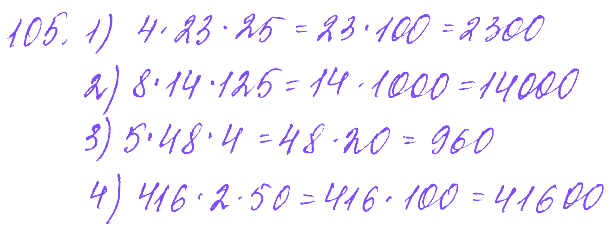 105. 1) 4 · 23 · 25 = 23 · 100 = 2300
2) 8 · 14 · 125 = 14 · 1000 = 14000
3) 5 · 48 · 4 = 48 · 20 = 960
4) 416 · 2 · 50 = 416 · 100 = 41600